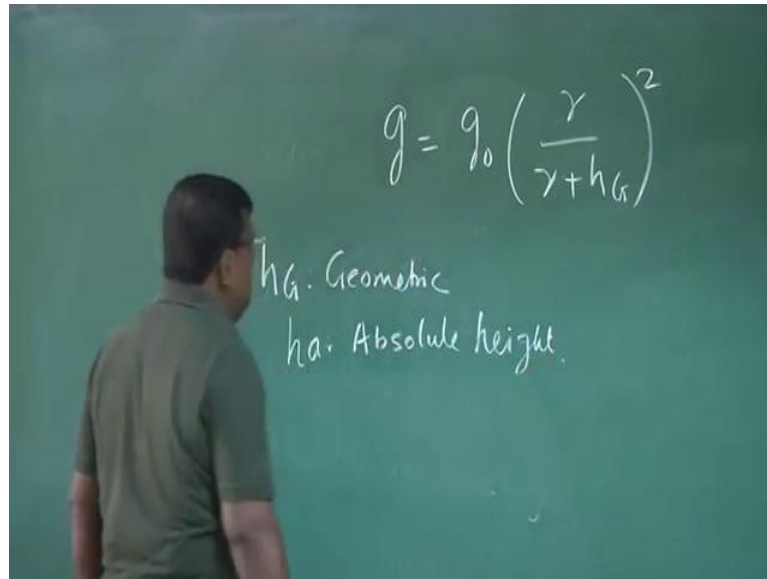 g = g₀ (r / (r + hG))²
hG. Geometric
ha. Absolute height.